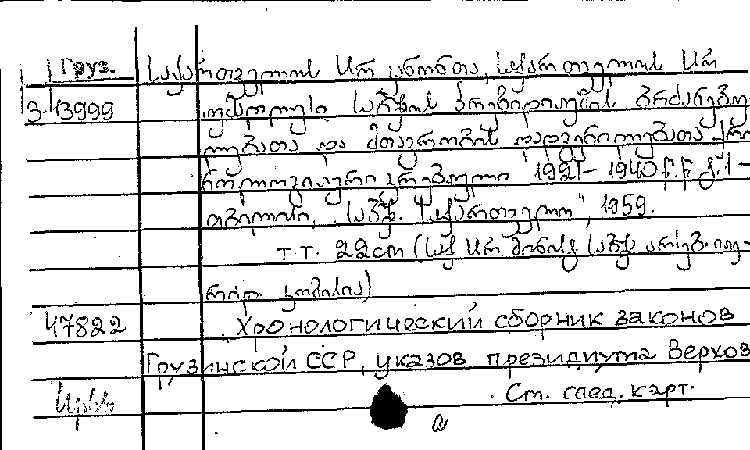 Груз. საქართველოს სსრ კანონთა, საქართველოს სსრ
3-13999 უმაღლესი საბჭოს პრეზიდიუმის ბრძანებუ-
ლებათა და მთავრობის დადგენილებათა ქრო-
ნოლოგიური კრებული 1921-1940 წ.წ. ტ. 1-
თბილისი, საბჭ. "საქართველო", 1959.
т.т. 22 cm
იურიდ. კომისია)
47822 Хронологический сборник законов
Грузинской ССР, указов президиума Верхов
. См. след. карт.